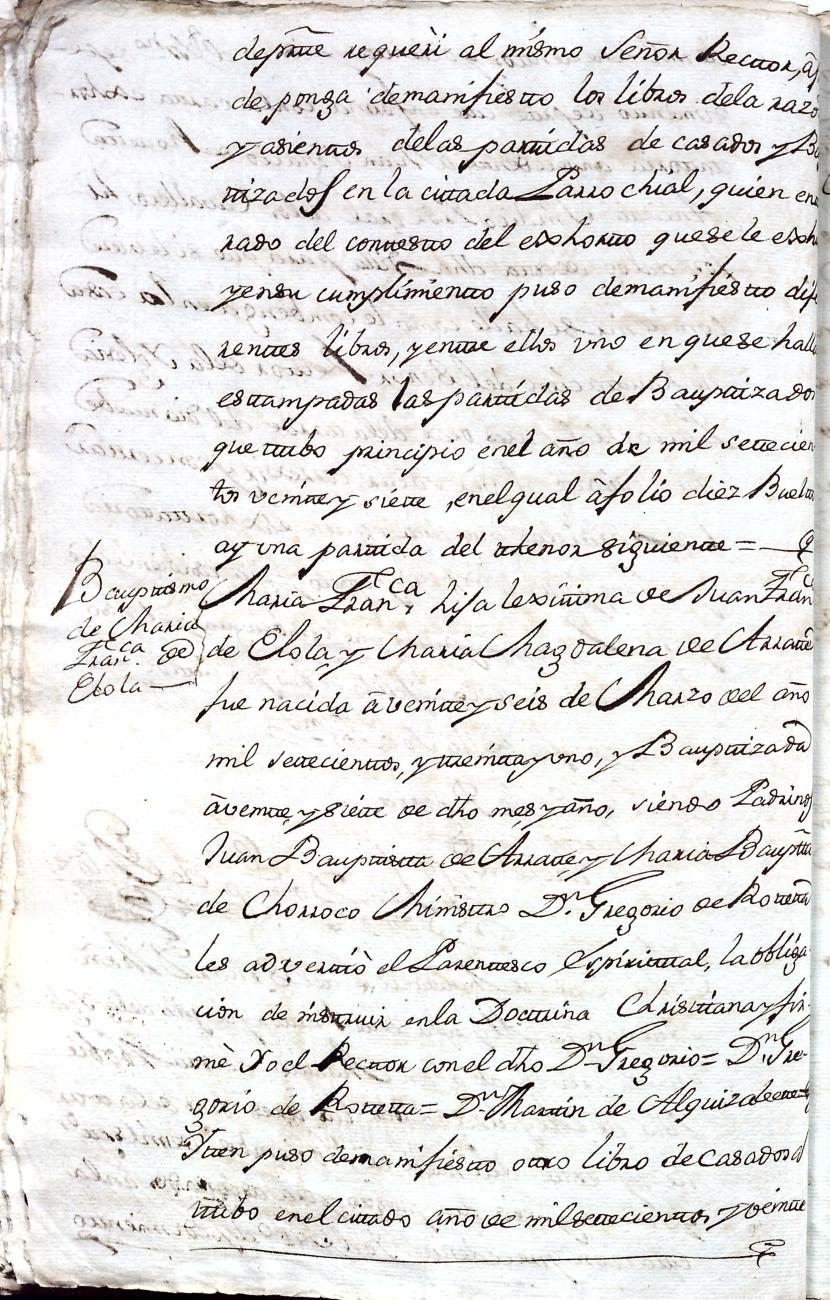 deprâte requeri al mismo Señor Rector, âf
de ponga demanifiestto los libros dela razo
y asienttos delas parttidas de casados y Ba
ttizados en la cittada Parrochial, quien en
rado del conttestto del exhortto quesele exh
yensu cumplimientto puso demanifiestto dife
renttes libros, yenttre ellos vno en quese halla
esttampadas las parttidas de Bapttizados
que ttubo principio enel año de mil settecien
ttos veintte y siette, enelqual âfolio diez Buelto
ay vna parttida del thenor siguientte =
Bapttismo
de Maria
Fran.ca de
Elola
Maria Fran.ca, hija lexittima de Juan Fran.co
de Elola, y Maria Magdalena de Arratte
fue nacida âveintte y seis de Marzo del año
mil settecienttos, y tteintta y vno, y Bapttizada
âveintte, y siette de dho mes, y año, siendo Padrinos
Juan Bapttistta de Arratte, y Maria Bapttta
de Chorroco Ministtro Dn. Gregorio de Rotetta
les adverttiò el Parenttesco Espirittual, la obliga-
cion de insttruir enla Docttrina Christtiana y fir-
mè Yo el Recttor con el dho Dn Gregorio = Dn. Gre-
gorio de Rotetta = Dn. Marttin de Alquizalette
Ytten puso demanifiestto ottro libro de casados q
ttubo enel cittado año de mil settecienttos y veintte